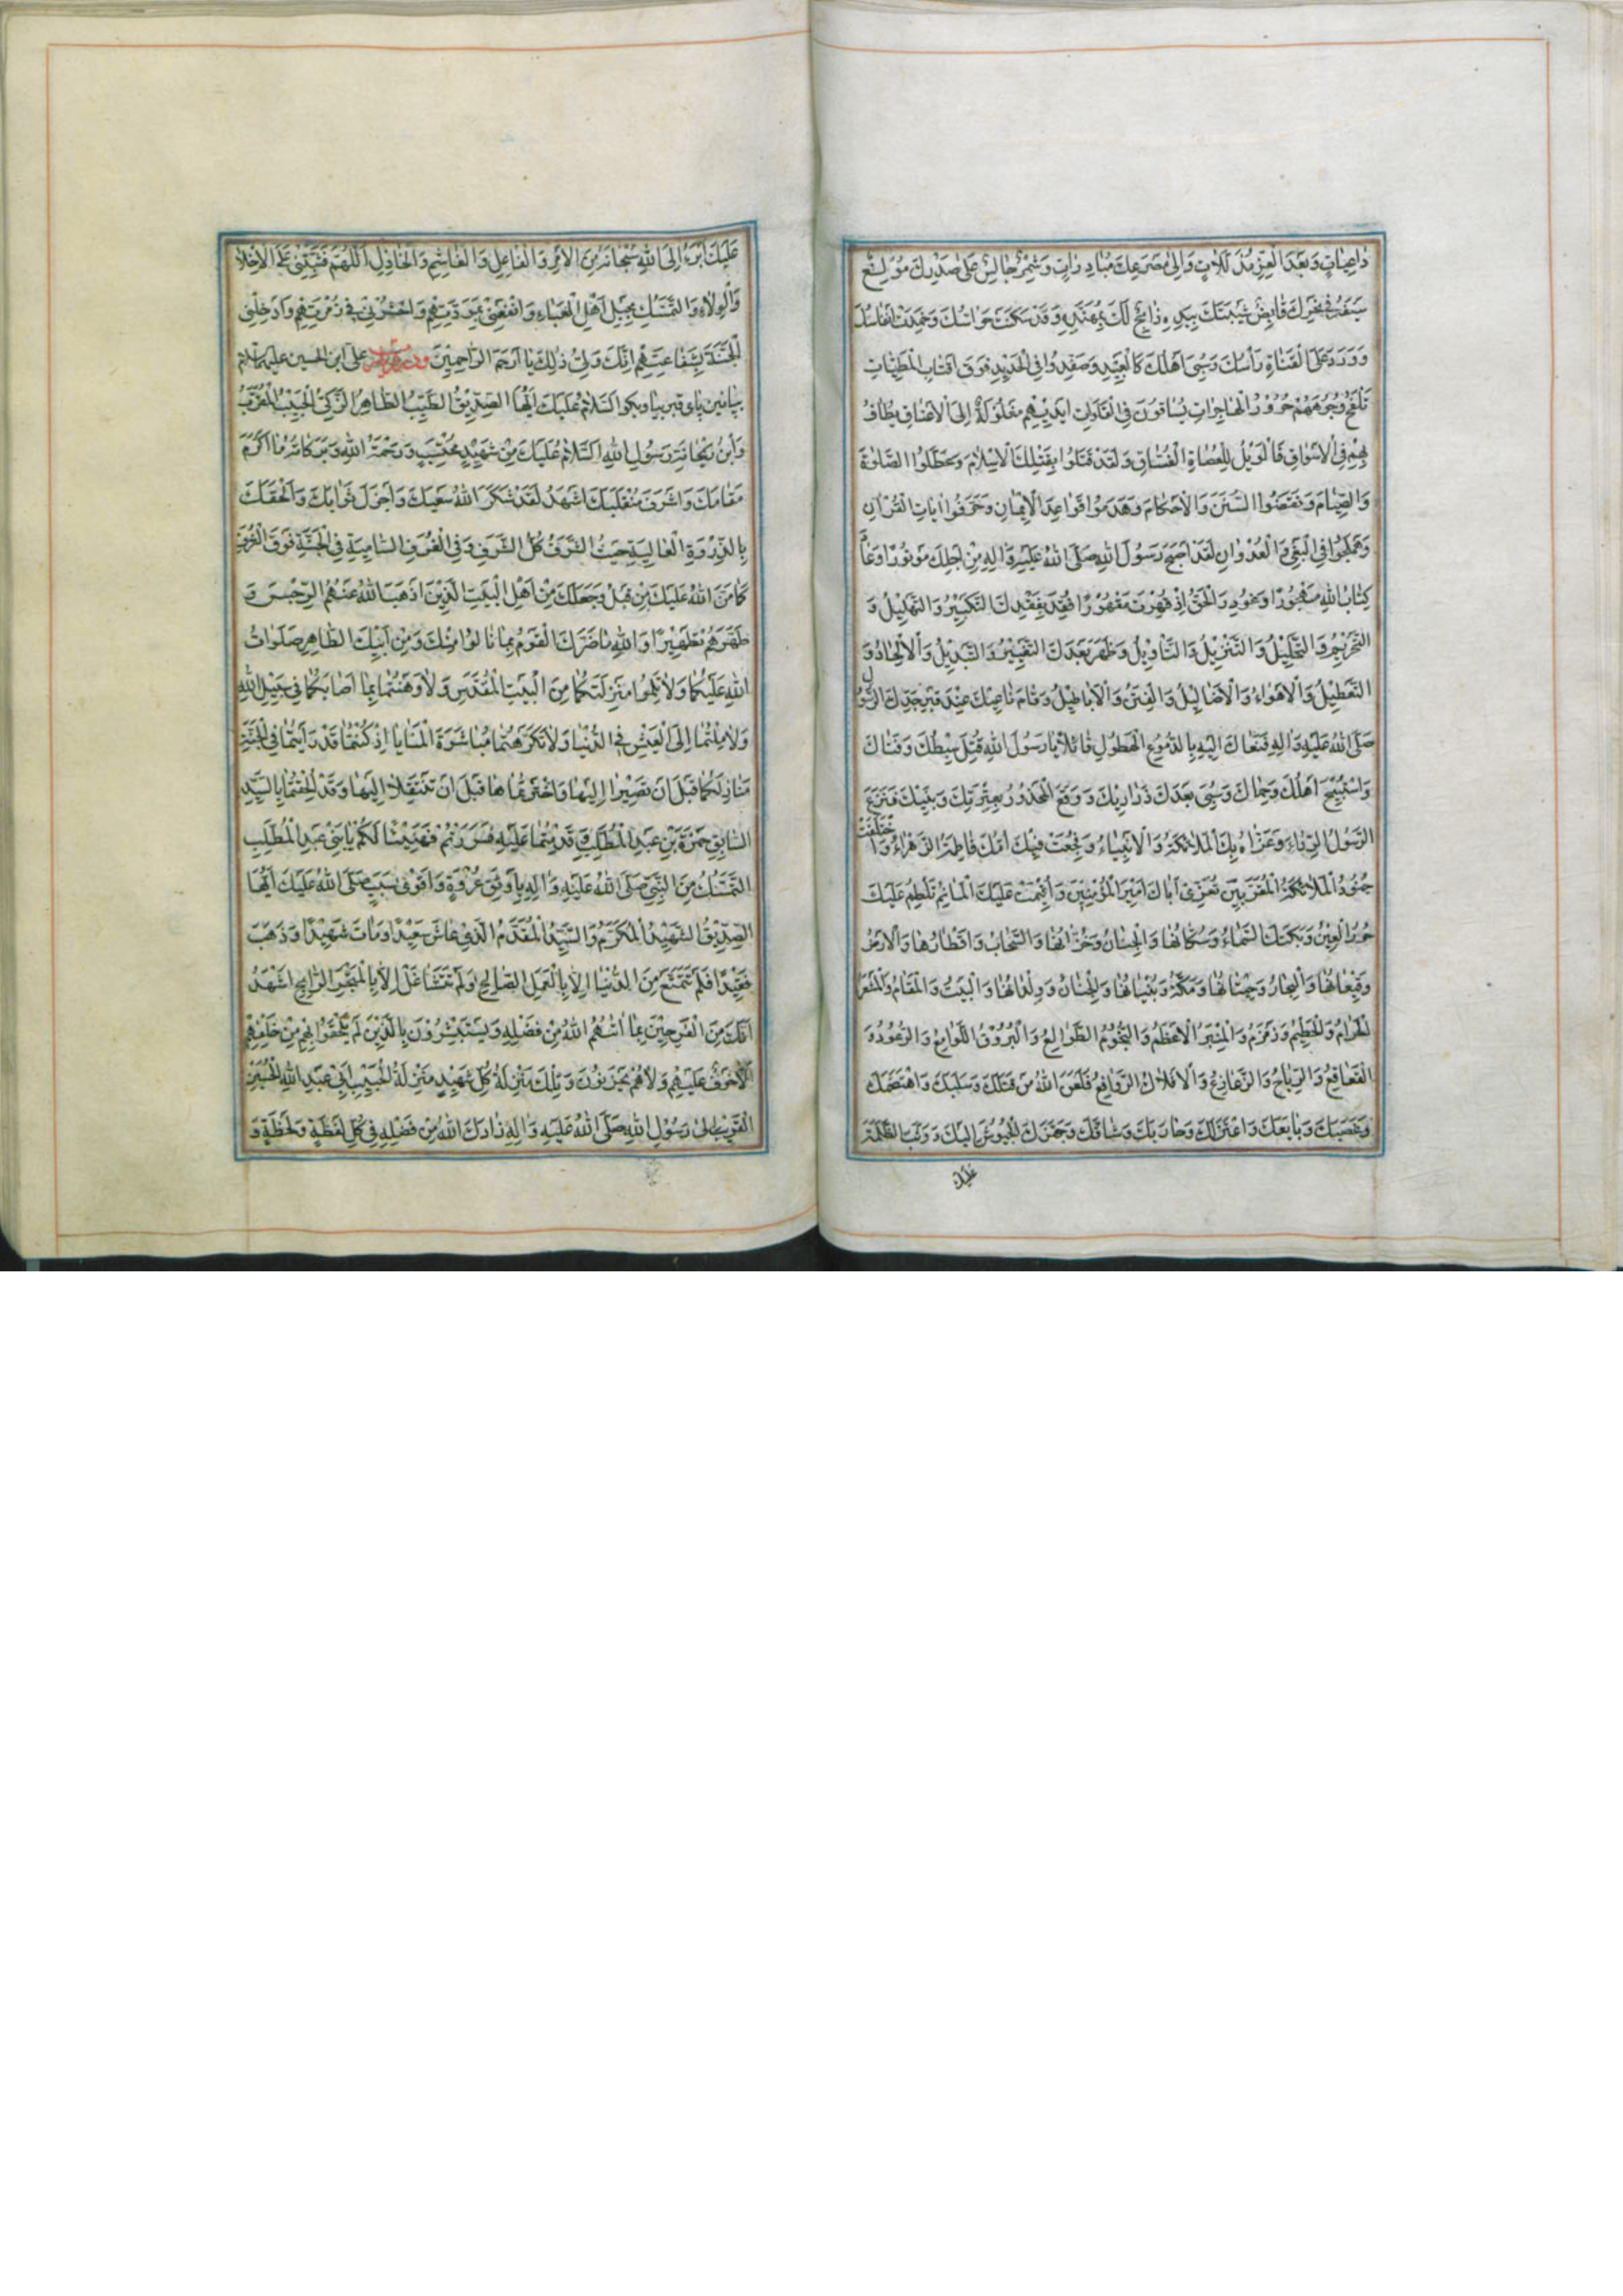 داعِياتٍ وَبَعْدَ الْعِزِّ مُذَلَّلاتٍ وَاِلى مَصْرَعِكَ مُبادِراتٍ وَشِمْرٌ جالِسٌ عَلى صَدْرِكَ مُوْلِغٌ
سَيْفَهُ فى نَحْرِكَ قابِضٌ شَيْبَتَكَ بِيَدِهِ ذابِحٌ لَكَ بِمُهَنَّدِهِ وَقَدْ سَكَنَتْ حَواسُّكَ وَخَمِدَتْ اَنْفاسُكَ
وَوَرَدَ عَلَى الْقَناةِ رَاْسُكَ وَسُبِىَ اَهْلُكَ كَالْعَبيدِ وَصُفِّدُوا فِى الْحَديدِ فَوْقَ اَقْتابِ الْمَطِيّاتِ
تَلْفَحُ وُجُوهَهُمْ حُرُورُ الْهاجِراتِ يُساقُونَ فِى الْفَلَواتِ اَيْديهِمْ مَغْلُولَةٌ اِلَى الْاَعْناقِ يُطافُ
بِهِمْ فِى الْاَسْواقِ فَالْوَيْلُ لِلْعُصاةِ الْفُسّاقِ وَلَقَدْ قَتَلُوا بِقَتْلِكَ الْاِسْلامَ وَعَطَّلُوا الصَّلوةَ
وَالصِّيامَ وَنَقَضُوا السُّنَنَ وَالْاَحْكامَ وَهَدَمُوا قَواعِدَ الْايمانِ وَحَرَّفُوا اياتِ الْقُرْانِ
وَهَمْلَجُوا فِى الْبَغْىِ وَالْعُدْوانِ لَقَدْ اَصْبَحَ رَسُولُ اللّٰهِ صَلَّى اللّٰهُ عَلَيْهِ وَالِهِ مِنْ اَجْلِكَ مَوْتُورًا وَعادَ
كِتابُ اللّٰهِ مَهْجُورًا وَغُودِرَ الْحَقُّ اِذْ قُهِرْتَ مَقْهُورًا فُقِدَ بِفَقْدِكَ التَّكْبيرُ وَالتَّهْليلُ وَ
التَّحْريمُ وَالتَّحْليلُ وَالتَّنْزيلُ وَالتَّاْويلُ وَظَهَرَ بَعْدَكَ التَّغْييرُ وَالتَّبْديلُ وَالْاِلْحادُ وَ
التَّعْطيلُ وَالْاَهْواءُ وَالْاَضاليلُ وَالْفِتَنُ وَالْاَباطيلُ وَقامَ ناعيكَ عِنْدَ قَبْرِ جَدِّكَ الرَّسُولِ
صَلَّى اللّٰهُ عَلَيْهِ وَالِهِ فَنَعاكَ اِلَيْهِ بِالدُّمُوعِ الْهَطُولِ قائِلًا يا رَسُولَ اللّٰهِ قُتِلَ سِبْطُكَ وَفَتاكَ
وَاسْتُبيحَ اَهْلُكَ وَحِماكَ وَسُبِىَ بَعْدَكَ ذَراريكَ وَوَقَعَ الْمَحْذُورُ بِعِتْرَتِكَ وَبَنيكَ فَنَزَعَ
الرَّسُولُ الرِّداءَ وَعَزّاهُ بِكَ الْمَلائِكَةُ وَالْاَنْبِياءُ وَفُجِعَتْ فيكَ اُمُّكَ فاطِمَةُ الزَّهْراءُ وَاخْتَلَفَتْ
جُنُودُ الْمَلائِكَةِ الْمُقَرَّبينَ تُعَزّى اَباكَ اَميرَ الْمُؤْمِنينَ وَاُقيمَتْ عَلَيْكَ الْمَاتِمُ تَلْطِمُ عَلَيْكَ
حُورُ الْعينِ وَبَكَتْكَ السَّماءُ وَسُكّانُها وَالْجِبالُ وَخُزّانُها وَالسَّحابُ وَاَقْطارُها وَالْاَرْضُ
وَقيعانُها وَالْبِحارُ وَحيتانُها وَمَكَّةُ وَبُنْيانُها وَالْجِنانُ وَوِلْدانُها وَالْبَيْتُ وَالْمَقامُ وَالْمَشْعَرُ
الْحَرامُ وَالْحَطيمُ وَزَمْزَمُ وَالْمِنْبَرُ الْاَعْظَمُ وَالنُّجُومُ الطَّوالِعُ وَالْبُرُوقُ اللَّوامِعُ وَالرُّعُودُ
الْقَعاقِعُ وَالرِّياحُ وَالزَّعازِعُ وَالْاَفْلاكُ الرَّوافِعُ فَلَعَنَ اللّٰهُ مَنْ قَتَلَكَ وَسَلَبَكَ وَاهْتَضَمَكَ
وَغَصَبَكَ وَبايَعَكَ وَاعْتَزَلَكَ وَحارَبَكَ وَشاقَّكَ وَجَهَّزَكَ الْجُيُوشَ اِلَيْكَ وَوَثَبَ الظَّلَمَةُ
عَلَيْكَ
عَلَيْكَ اَبْرَءُ اِلَى اللّٰهِ سُبْحانَهُ مِنَ الْامِرِ وَالْفاعِلِ وَالْغاشِمِ وَالْخاذِلِ اَللّٰهُمَّ فَثَبِّتْنى عَلَى الْاِخْلاصِ
وَالْوِلاءِ وَالتَّمَسُّكِ بِحَبْلِ اَهْلِ الْعَباءِ وَانْفَعْنى بِمَوَدَّتِهِمْ وَاحْشُرْنى فى زُمْرَتِهِمْ وَاَدْخِلْنى
الْجَنَّةَ بِشَفاعَتِهِمْ اِنَّكَ وَلِىُّ ذلِكَ يا اَرْحَمَ الرّاحِمينَ على ابن الحسين عليهما السلام
بپائين پاى قبر بيا وبگو اَلسَّلامُ عَلَيْكَ اَيُّهَا الصِّدّيقُ الطَّيِّبُ الطّاهِرُ الزَّكِىُّ الْحَبيبُ الْمُقَرَّبُ
وَابْنُ رَيْحانَةِ رَسُولِ اللّٰهِ اَلسَّلامُ عَلَيْكَ مِنْ شَهيدٍ مُحْتَسِبٍ وَرَحْمَةُ اللّٰهِ وَبَرَكاتُهُ ما اَكْرَمَ
مَقامَكَ وَاَشْرَفَ مُنْقَلَبَكَ اَشْهَدُ لَقَدْ شَكَرَ اللّٰهُ سَعْيَكَ وَاَجْزَلَ ثَوابَكَ وَاَلْحَقَكَ
بِالذِّرْوَةِ الْعالِيَةِ حَيْثُ الشَّرَفُ كُلُّ الشَّرَفِ وَفِى الْغُرَفِ السّامِيَةِ فِى الْجَنَّةِ فَوْقَ الْغُرَفِ
كَما مَنَّ اللّٰهُ عَلَيْكَ مِنْ قَبْلُ وَجَعَلَكَ مِنْ اَهْلِ الْبَيْتِ الَّذينَ اَذْهَبَ اللّٰهُ عَنْهُمُ الرِّجْسَ وَ
طَهَّرَهُمْ تَطْهيرًا وَاللّٰهِ ما ضَرَّكَ الْقَوْمُ بِما نالُوا مِنْكَ وَمِنْ اَبيكَ الطّاهِرِ صَلَواتُ
اللّٰهِ عَلَيْكُما وَلا ثَلَمُوا مَنْزِلَتَكُما مِنَ الْبَيْتِ الْمُقَدَّسِ وَلا وَهَنْتُما بِما اَصابَكُما فى سَبيلِ اللّٰهِ
وَلا مِلْتُما اِلَى الْعَيْشِ فِى الدُّنْيا وَلا تَكَرَّهْتُما مُباشَرَةَ الْمَنايا اِذْ كُنْتُما قَدْ رَاَيْتُما فِى الْجَنَّةِ
مَنازِلَكُما قَبْلَ اَنْ تَصيرا اِلَيْها وَاخْتَرْتُماها قَبْلَ اَنْ تَنْتَقِلا اِلَيْها وَقَدْ اُلْحِقْتُما بِالسَّيِّدِ
السّابِقِ حَمْزَةَ بْنِ عَبْدِ الْمُطَّلِبِ قَدِمْتُما عَلَيْهِ فَسُرِرْتُمْ فَهَنيئًا لَكُمْ يا بَنى عَبْدِ الْمُطَّلِبِ
التَّمَسُّكُ مِنَ النَّبِىِّ صَلَّى اللّٰهُ عَلَيْهِ وَالِهِ بِاَوْثَقِ عُرْوَةٍ وَاَقْوى سَبَبٍ صَلَّى اللّٰهُ عَلَيْكَ اَيُّهَا
الصِّدّيقُ الشَّهيدُ الْمُكَرَّمُ وَالسَّيِّدُ الْمُقَدَّمُ الَّذى عاشَ سَعيدًا وَماتَ شَهيدًا وَذَهَبَ
فَقيدًا فَلَمْ تَتَمَتَّعْ مِنَ الدُّنْيا اِلّا بِالْعَمَلِ الصّالِحِ وَلَمْ تَتَشاغَلْ اِلّا بِالْمَتْجَرِ الرّابِحِ اَشْهَدُ
اَنَّكَ مِنَ الْفَرِحينَ بِما اتيهُمُ اللّٰهُ مِنْ فَضْلِهِ وَيَسْتَبْشِرُونَ بِالَّذينَ لَمْ يَلْحَقُوا بِهِمْ مِنْ خَلْفِهِمْ
اَلّا خَوْفٌ عَلَيْهِمْ وَلا هُمْ يَحْزَنُونَ وَتِلْكَ مَنْزِلَةُ كُلِّ شَهيدٍ مَنْزِلَةُ الْحَبيبِ اَبى عَبْدِ اللّٰهِ الْحُسَيْنِ
الْقَريبِ اِلى رَسُولِ اللّٰهِ صَلَّى اللّٰهُ عَلَيْهِ وَالِهِ زادَكَ اللّٰهُ مِنْ فَضْلِهِ فى كُلِّ لَفْظَةٍ وَلَحْظَةٍ وَ